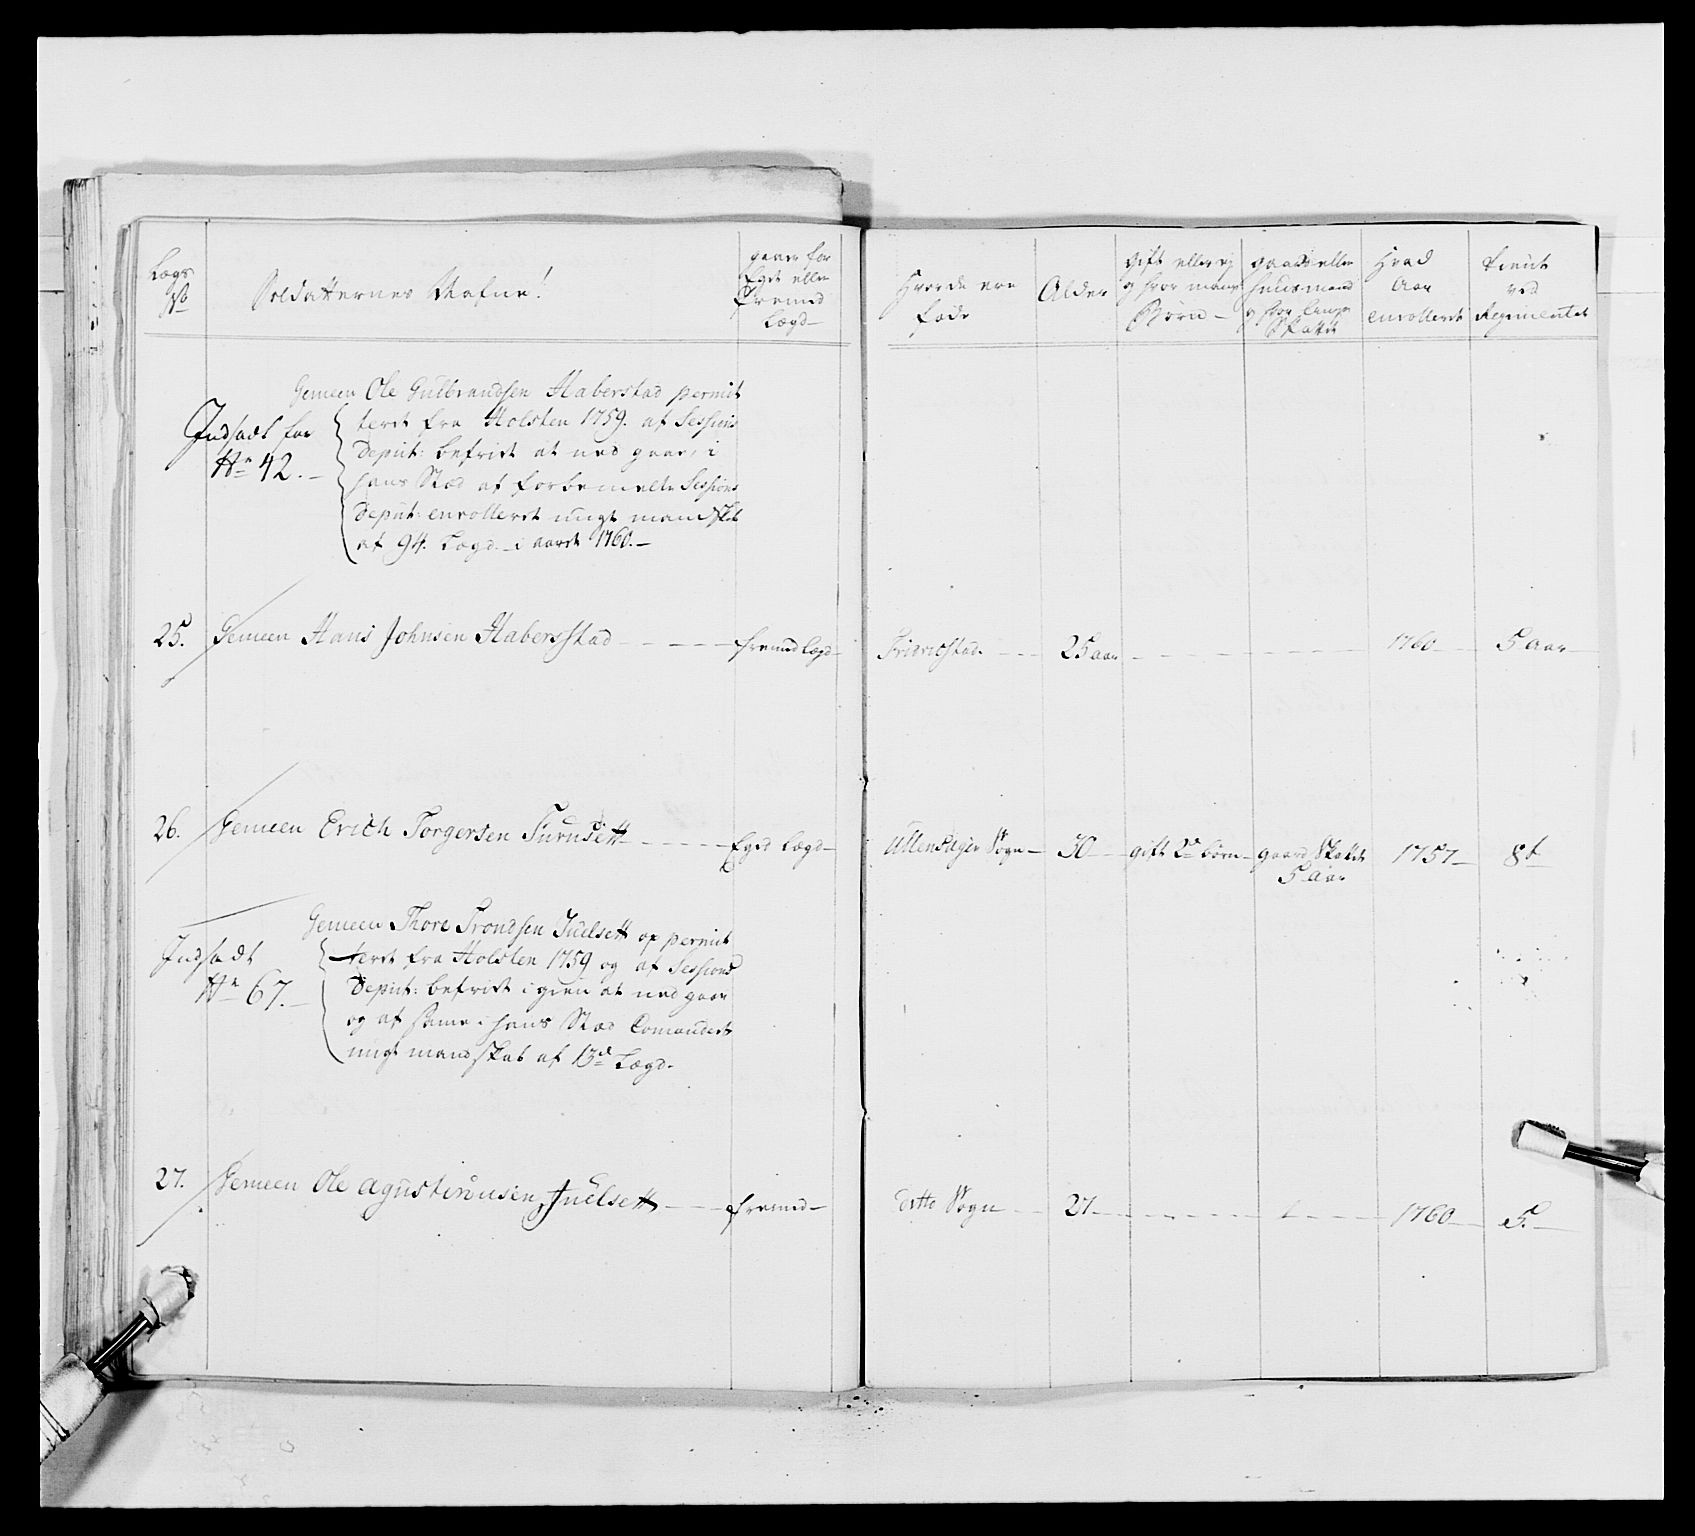 Lægs
No
Soldatternes Nafne!
gaaer for
Eget eller
fremed
Lægd
Hvorde ere
føde
Alder
Gift eller ej
og hvor mange
Børn
gaard eller
huusmand
og hvor længe
Skattet
Hvad
Aar
enrolleret
tient
ved
Regimentet
Gemeen Ole Gulbrandsen Haberstad permit
teret fra Holsten 1759. af Sessions
Deput: befriet at ned gaae, i
hans Stæd af forbemelte Sessions
Deput: enrolleret ungt mandskab
af 94. Lægd i aaret 1760.
Indsadt for
No 42.
25. Gemeen Hans Johnsen Habersstad fremed Lægd Fridricstad 25 aar 1760 5 Aar
26. Gemeen Erich Torgersen Furusett Eged Lægd Ullensager Sogn 30 gift 2 børn gaard Skattet 1757 8t
5 Aar
Gemeen Thore Trondsen Juelsett og permit
teret fra Holsten 1759 og af Sessions
Deput: befriet igien at ned gaae
og af same i hans Stæd Comanderet
ungt mandskab af 13d Lægd.
Indsadt
No 67.
27. Gemeen Ole Agustinusen Juelsett fremed Ditto Sogn 27 1760 5.